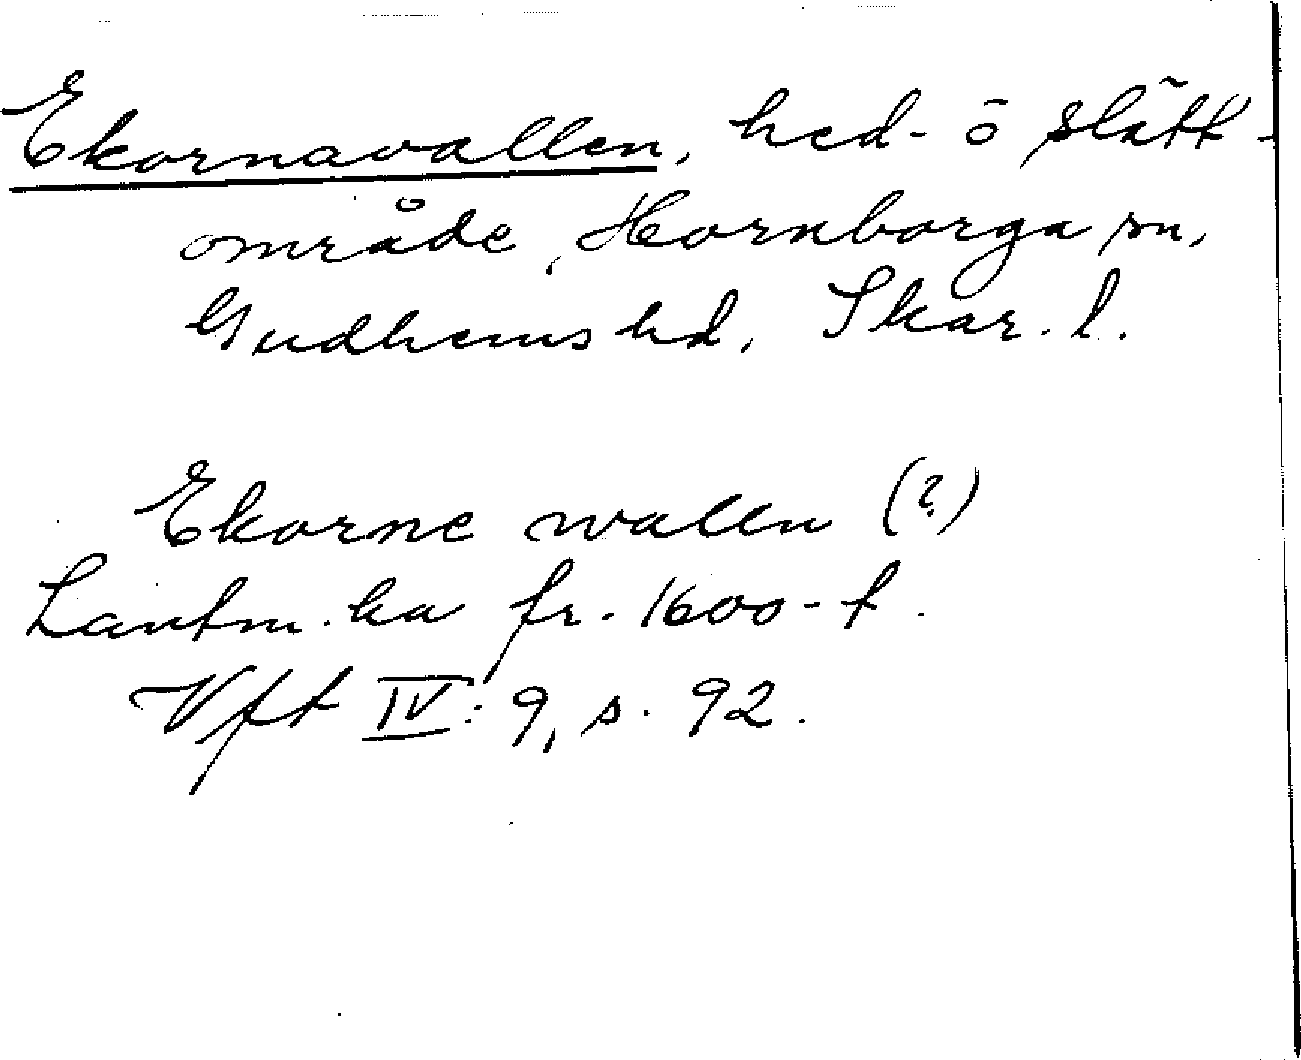 Ekornavallen, hed- o slätt-
område, Hornborga sn,
Gudhems hd, Skar. l.
Ekorne wallen (?)
Lantm. ka fr. 1600-t.
Vft IV: 9, s. 92.